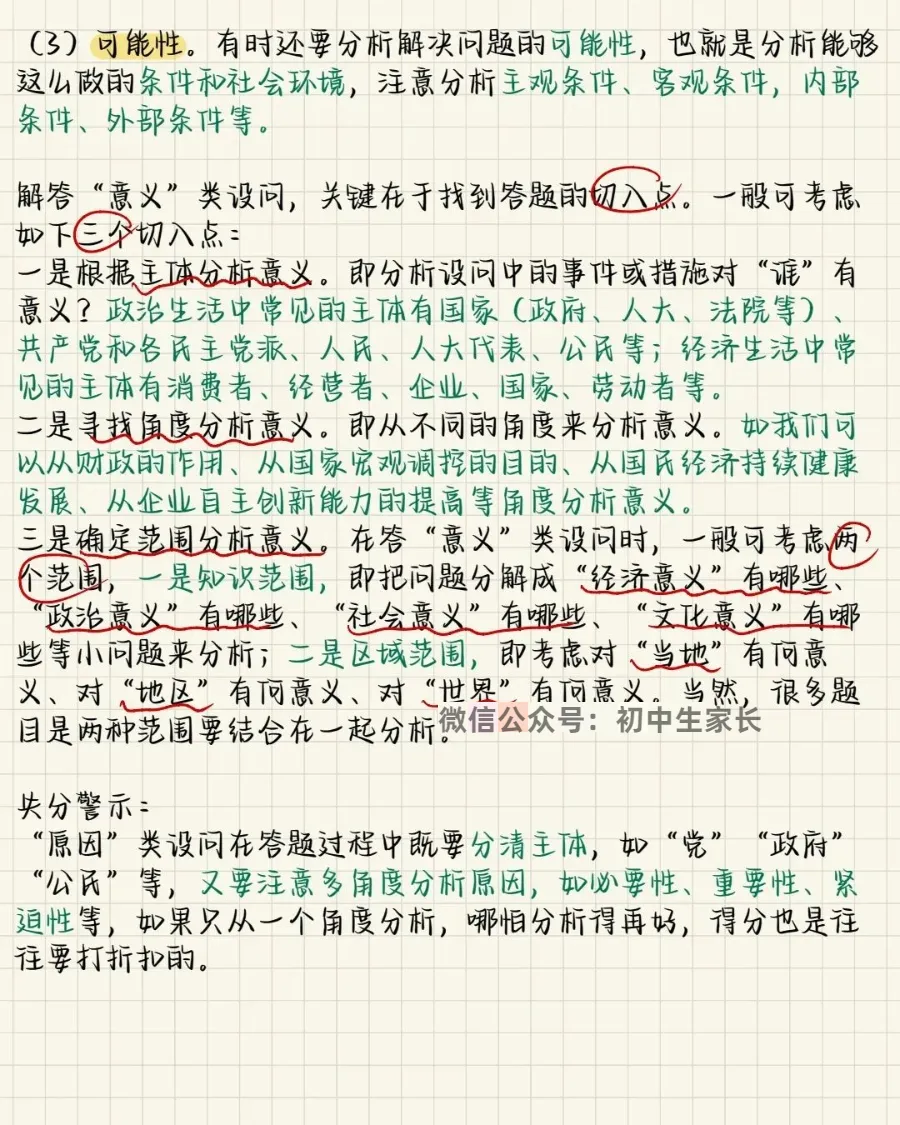 （3）可能性。有时还要分析解决问题的可能性，也就是分析能够
这么做的条件和社会环境，注意分析主观条件、客观条件，内部
条件、外部条件等。
解答“意义”类设问，关键在于找到答题的切入点。一般可考虑
如下三个切入点：
一是根据主体分析意义。即分析设问中的事件或措施对“谁”有
意义？政治生活中常见的主体有国家（政府、人大、法院等）、
共产党和各民主党派、人民、人大代表、公民等；经济生活中常
见的主体有消费者、经营者、企业、国家、劳动者等。
二是寻找角度分析意义。即从不同的角度来分析意义。如我们可
以从财政的作用、从国家宏观调控的目的、从国民经济持续健康
发展、从企业自主创新能力的提高等角度分析意义。
三是确定范围分析意义。在答“意义”类设问时，一般可考虑两
个范围，一是知识范围，即把问题分解成“经济意义”有哪些、
“政治意义”有哪些、“社会意义”有哪些、“文化意义”有哪
些等小问题来分析；二是区域范围，即考虑对“当地”有何意
义、对“地区”有何意义、对“世界”有何意义。当然，很多题
目是两种范围要结合在一起分析。
微信公众号：初中生家长
失分警示：
“原因”类设问在答题过程中既要分清主体，如“党”“政府”
“公民”等，又要注意多角度分析原因，如必要性、重要性、紧
迫性等，如果只从一个角度分析，哪怕分析得再好，得分也是往
往要打折扣的。